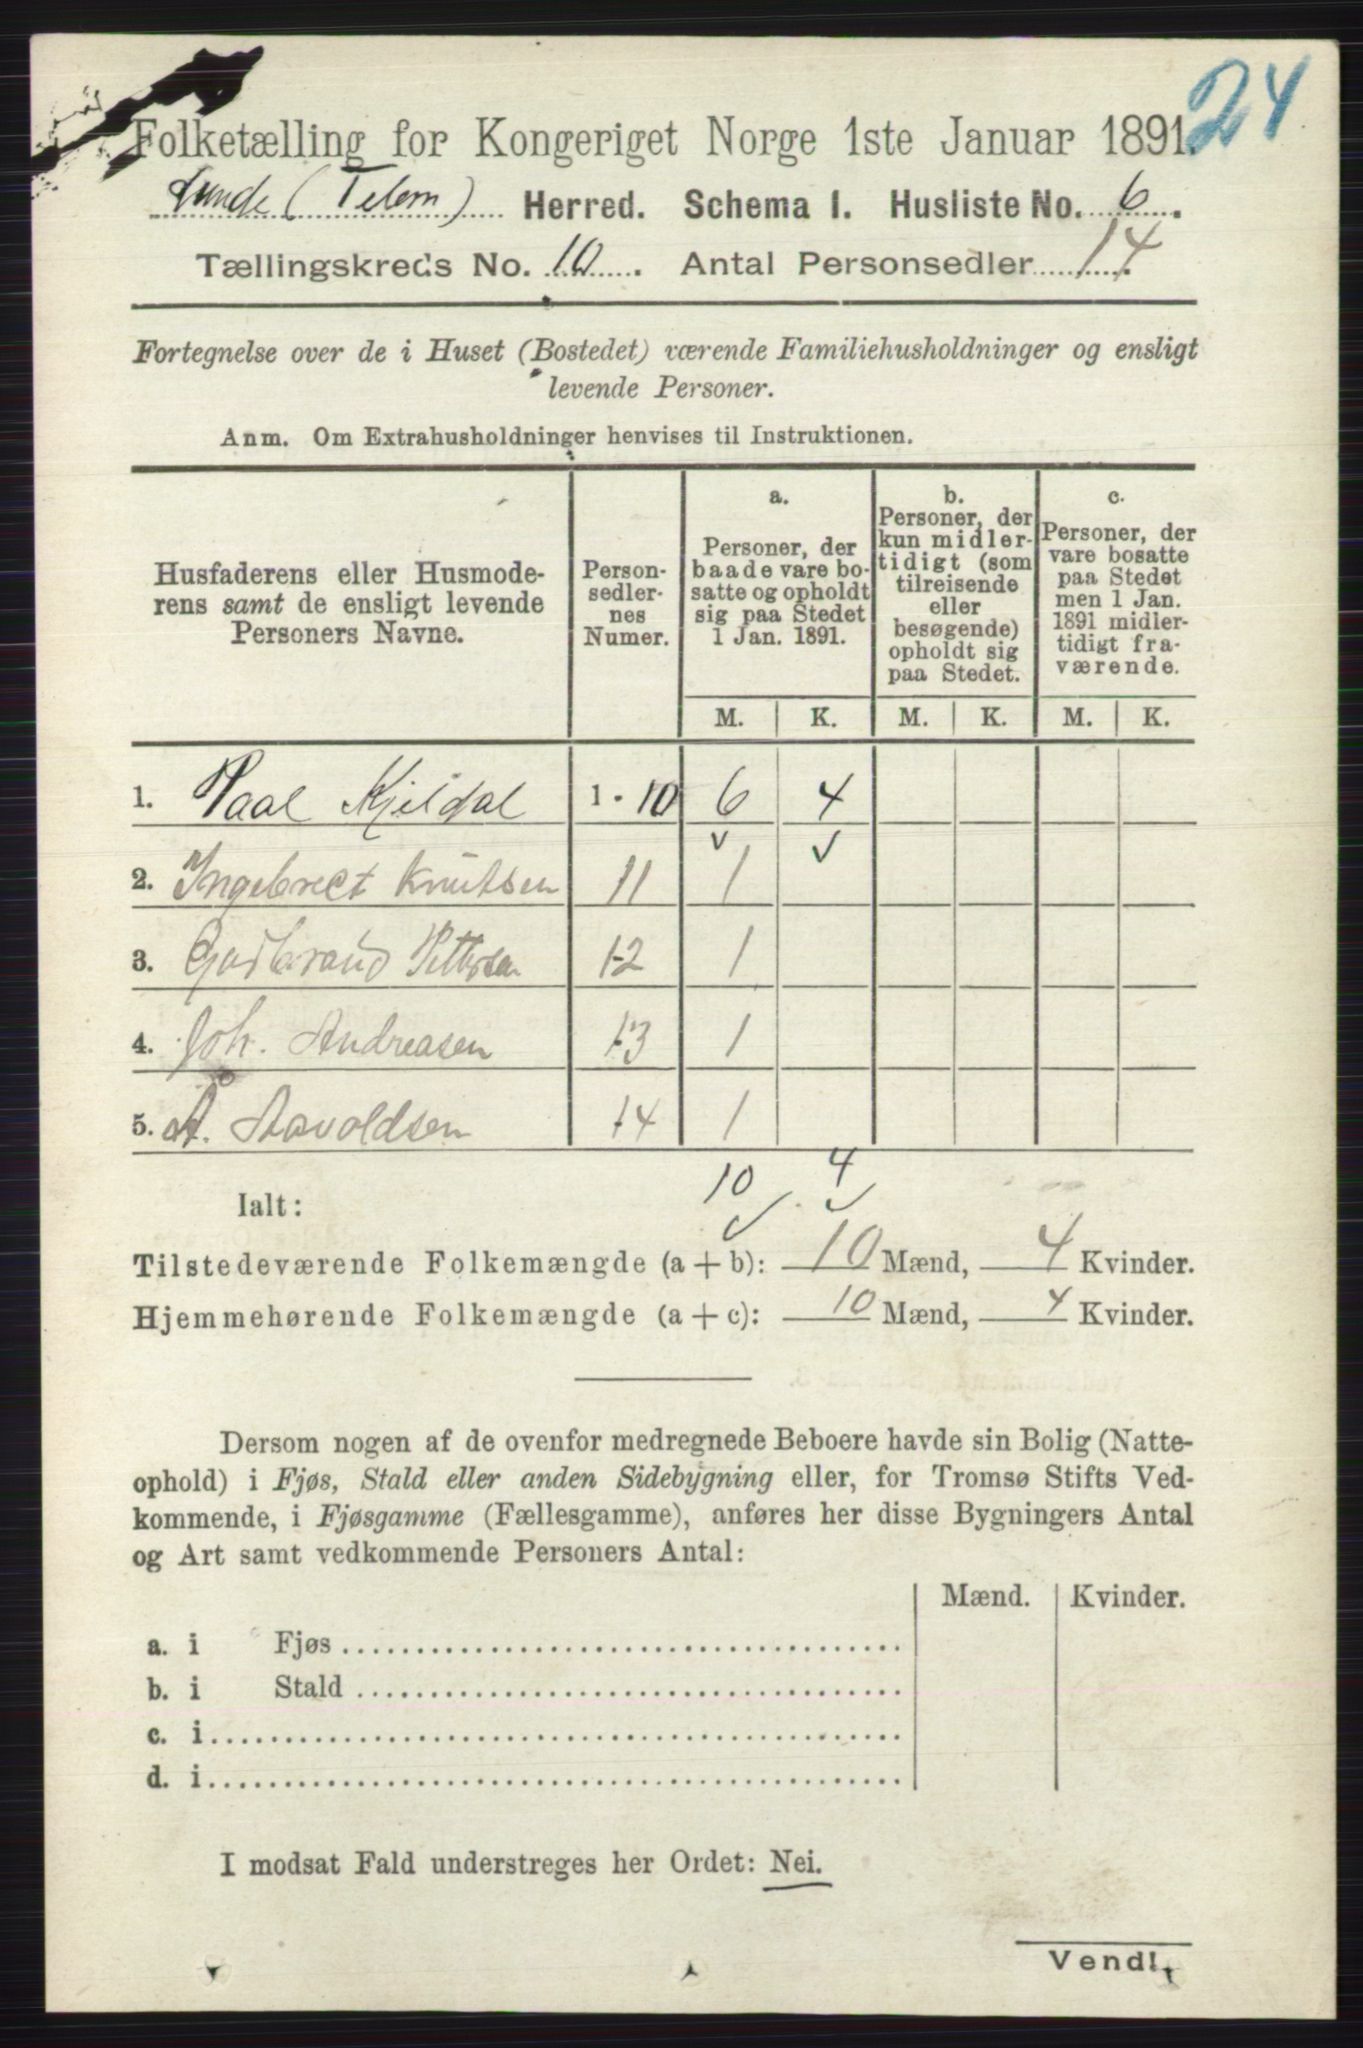 24
Folketælling for Kongeriget Norge 1ste Januar 1891.
Lunde (Telem) Herred. Schema 1. Husliste No. 6.
Tællingskreds No. 10. Antal Personsedler 14.
Fortegnelse over de i Huset (Bostedet) værende Familiehusholdninger og ensligt
levende Personer.
Anm. Om Extrahusholdninger henvises til Instruktionen.
Husfaderens eller Husmode-
rens samt de ensligt levende
Personers Navne.
Person-
sedler-
nes
Numer.
a.
Personer, der
baade vare bo-
satte og opholdt
sig paa Stedet
1 Jan. 1891.
b.
Personer, der
kun midler-
tidigt (som
tilreisende
eller
besøgende)
opholdt sig
paa Stedet.
c.
Personer, der
vare bosatte
paa Stedet
men 1 Jan.
1891 midler-
tidigt fra-
værende.
M. K. M. K. M. K.
1. Paal Kjeldal 1 - 10 6 4
2. Ingebrect Knutsen 11 1
3. Gudbrand Pettersen 12 1
4. Joh. Andreasen 13 1
5. A. Aavoldsen 14 1
Ialt: 10 4
Tilstedeværende Folkemængde (a + b): 10 Mænd, 4 Kvinder.
Hjemmehørende Folkemængde (a + c): 10 Mænd, 4 Kvinder.
Dersom nogen af de ovenfor medregnede Beboere havde sin Bolig (Natte-
ophold) i Fjøs, Stald eller anden Sidebygning eller, for Tromsø Stifts Ved-
kommende, i Fjøsgamme (Fællesgamme), anføres her disse Bygningers Antal
og Art samt vedkommende Personers Antal:
Mænd. Kvinder.
a. i Fjøs
b. i Stald
c. i
d. i
I modsat Fald understreges her Ordet: Nei.
Vend!